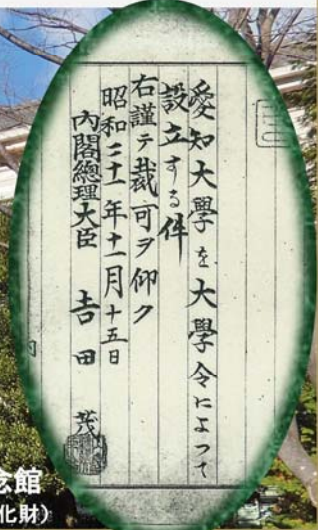 愛知大學を大學令によつて
設立する件
右謹テ裁可ヲ仰ク
昭和二十一年十一月十五日
內閣總理大臣 吉田 茂
念館
化財)